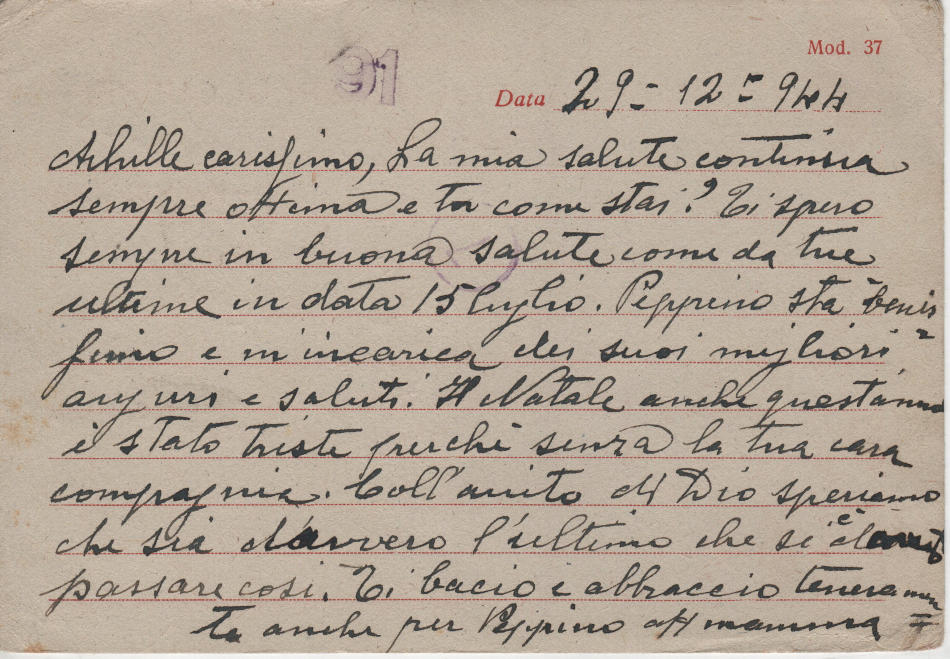 Mod. 37
91
Data 29-12-944
Achille carissimo, La mia salute continua
sempre ottima e tu come stai? Ti spero
sempre in buona salute come da tue
ultime in data 15 luglio. Peppino sta benis
simo e m'incarica dei suoi migliori
auguri e saluti. Il Natale anche quest'anno
è stato triste perchè senza la tua cara
compagnia. Coll'aiuto di Dio speriamo
che sia davvero l'ultimo che si è
passare così. Ti bacio e abbraccio teneramen
te anche per Peppino aff mamma